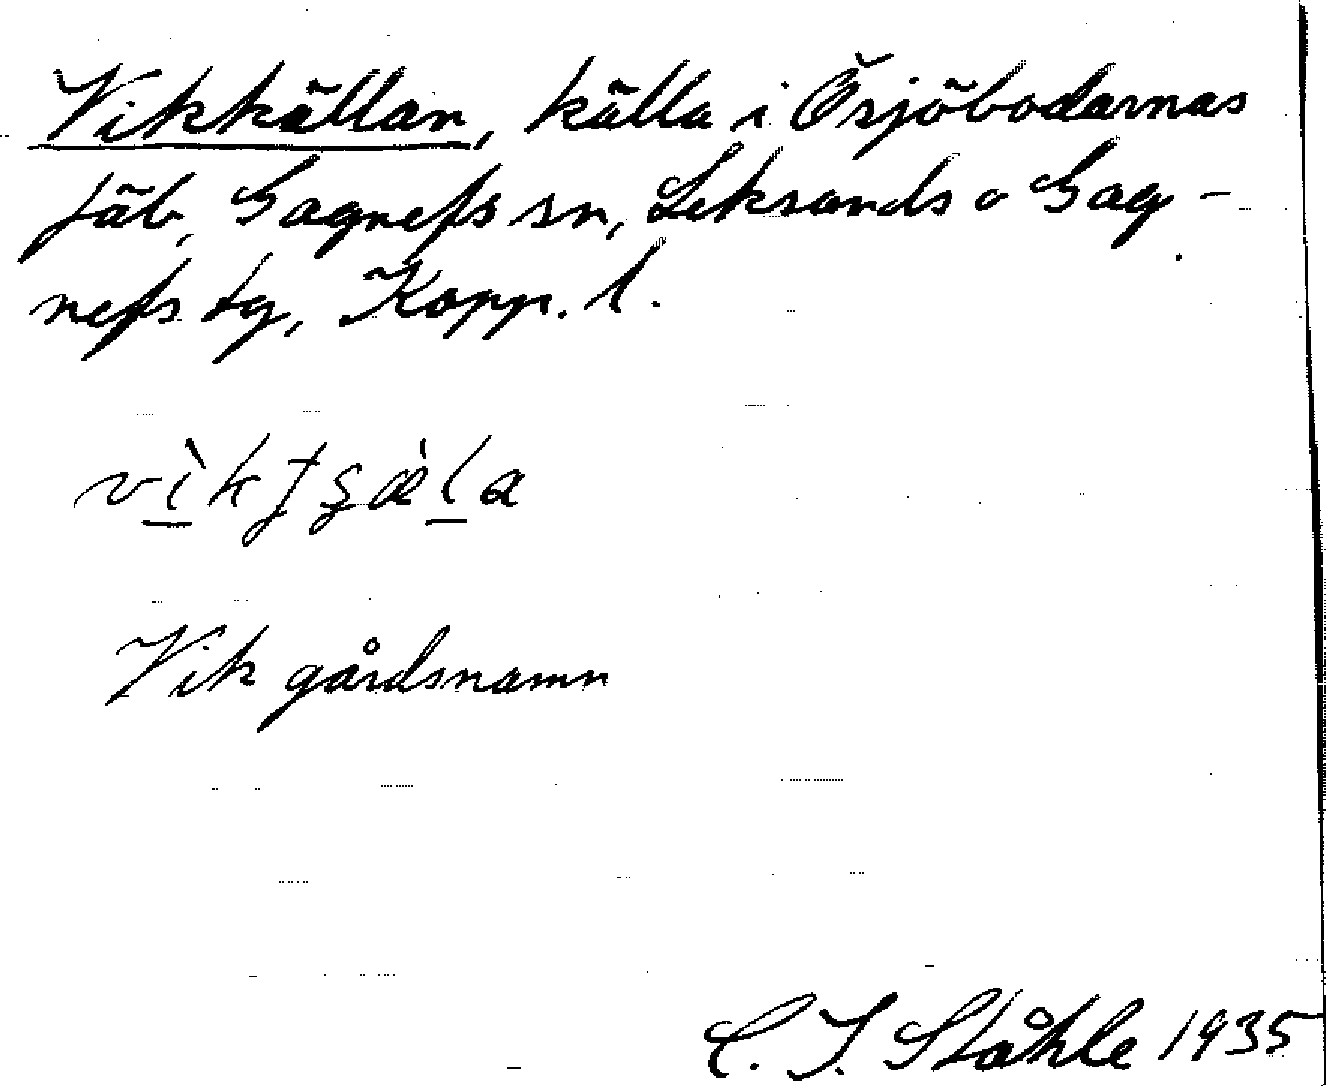 Vikkällan, källa i Örsjöbodarnas
fäb, Gagnefs sn, Leksands o Gag-
nefs tg, Kopp. l.
Vik gårdsnamn
C. I. Ståhle 1935